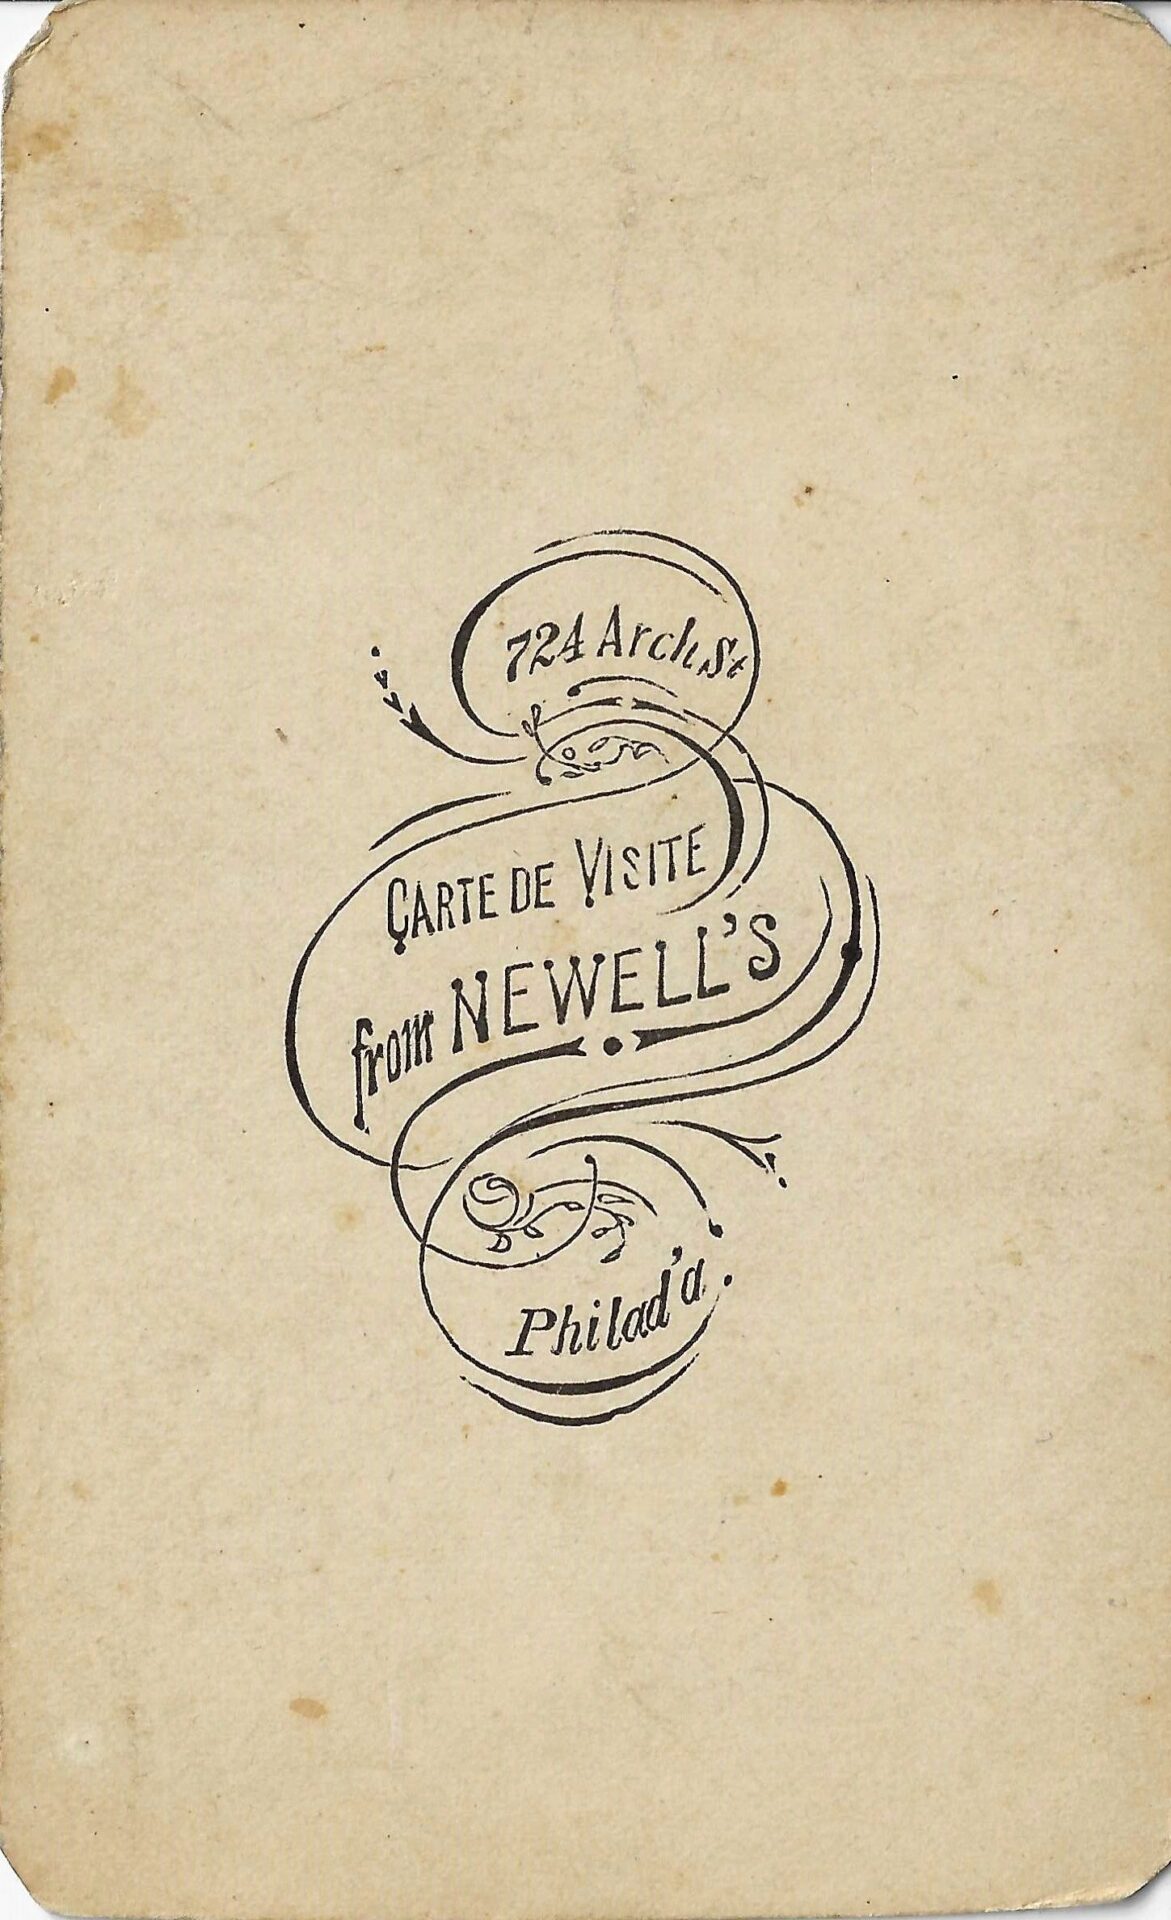 724 Arch St
CARTE DE VISITE
from NEWELL'S
Philad'a.